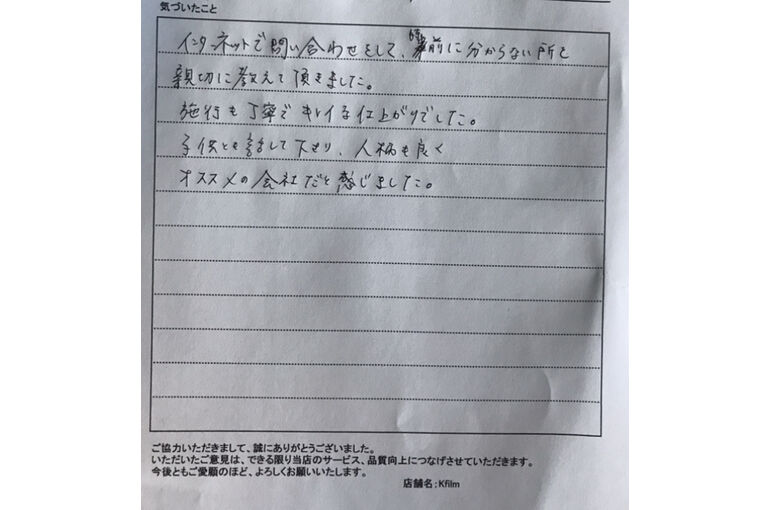 気づいたこと
インターネットで問い合わせをして、事前に分からない所も
親切に教えて頂きました。
施行も丁寧でキレイな仕上がりでした。
子供とも話して下さり、人柄も良く
オススメの会社だと感じました。
ご協力いただきまして、誠にありがとうございました。
いただいたご意見は、できる限り当店のサービス、品質向上につなげさせていただきます。
今後ともご愛顧のほど、よろしくお願いいたします。
店舗名：Kfilm